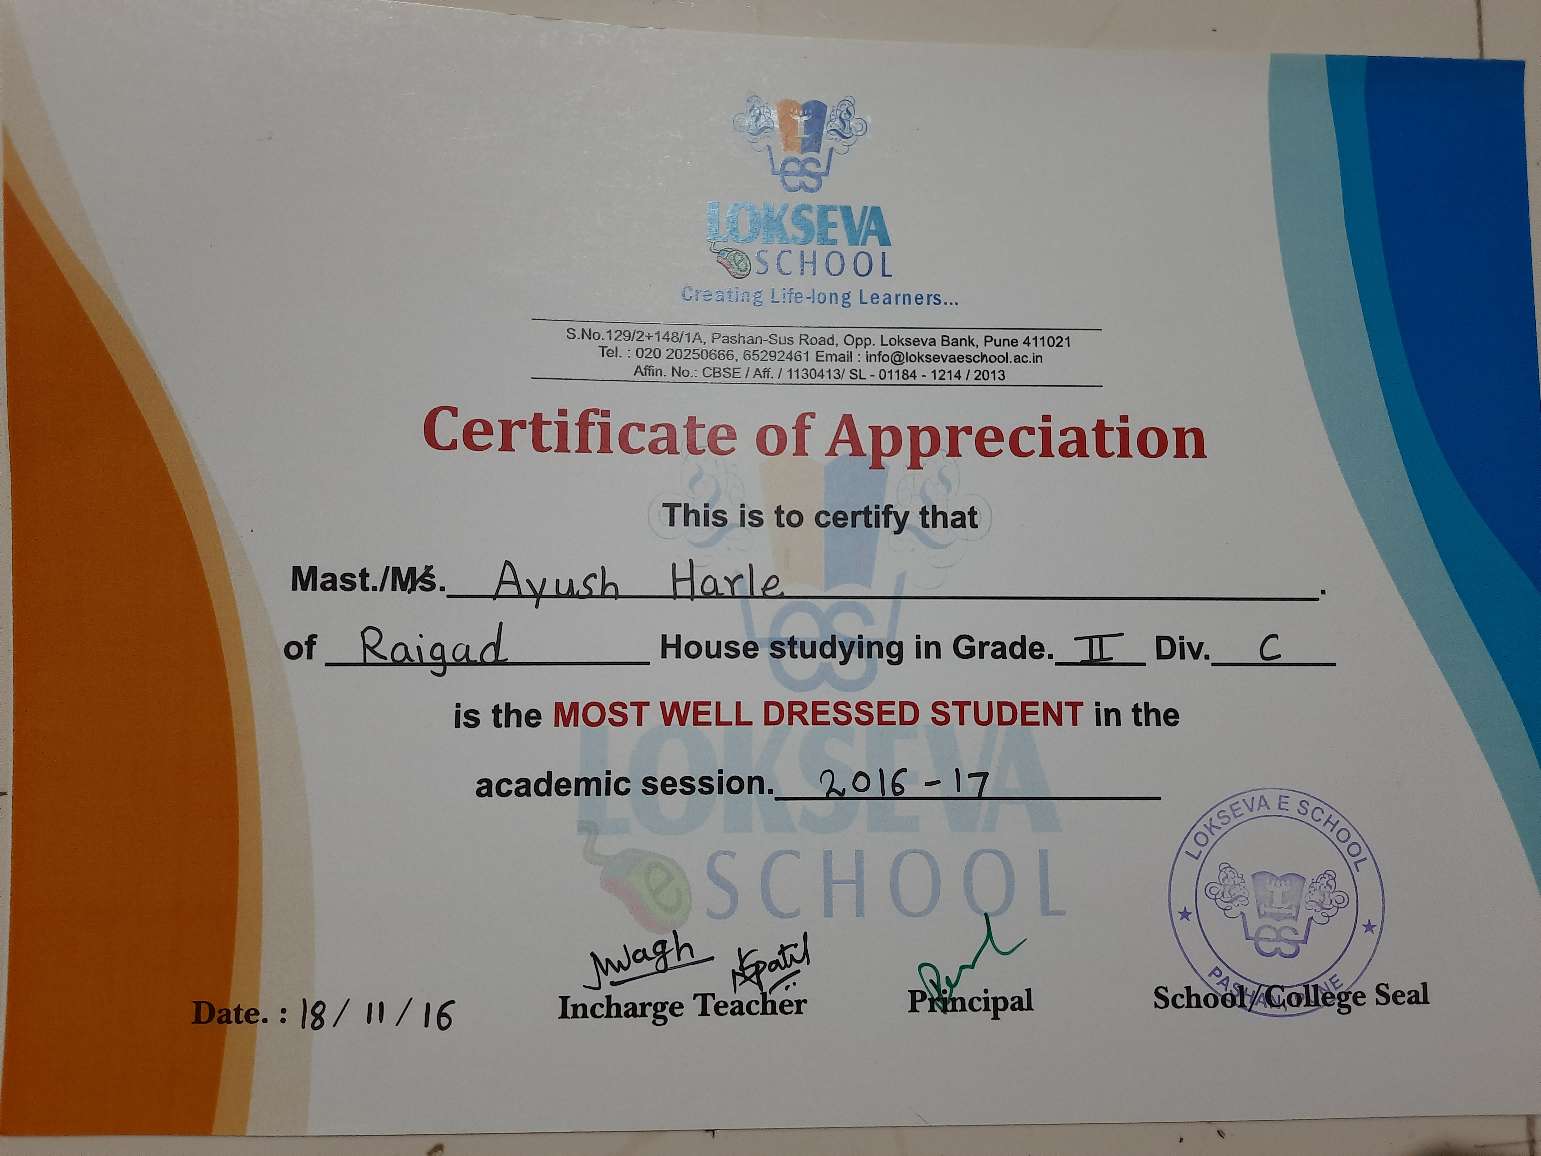 LOKSEVA
e SCHOOL
Creating Life-long Learners...
S.No.129/2+148/1A, Pashan-Sus Road, Opp. Lokseva Bank, Pune 411021
Tel. : 020 20250666, 65292461 Email : info@loksevaeschool.ac.in
Affin. No.: CBSE / Aff. / 1130413/ SL - 01184 - 1214 / 2013
Certificate of Appreciation
This is to certify that
Mast./Ms. Ayush Harle.
of Raigad House studying in Grade. II Div. C
is the MOST WELL DRESSED STUDENT in the
academic session. 2016-17
LOKSEVA
e SCHOOL
LOKSEVA E SCHOOL
es
PASHAN, PUNE
Wagh Patil
Date. : 18/11/16 Incharge Teacher Principal School/College Seal